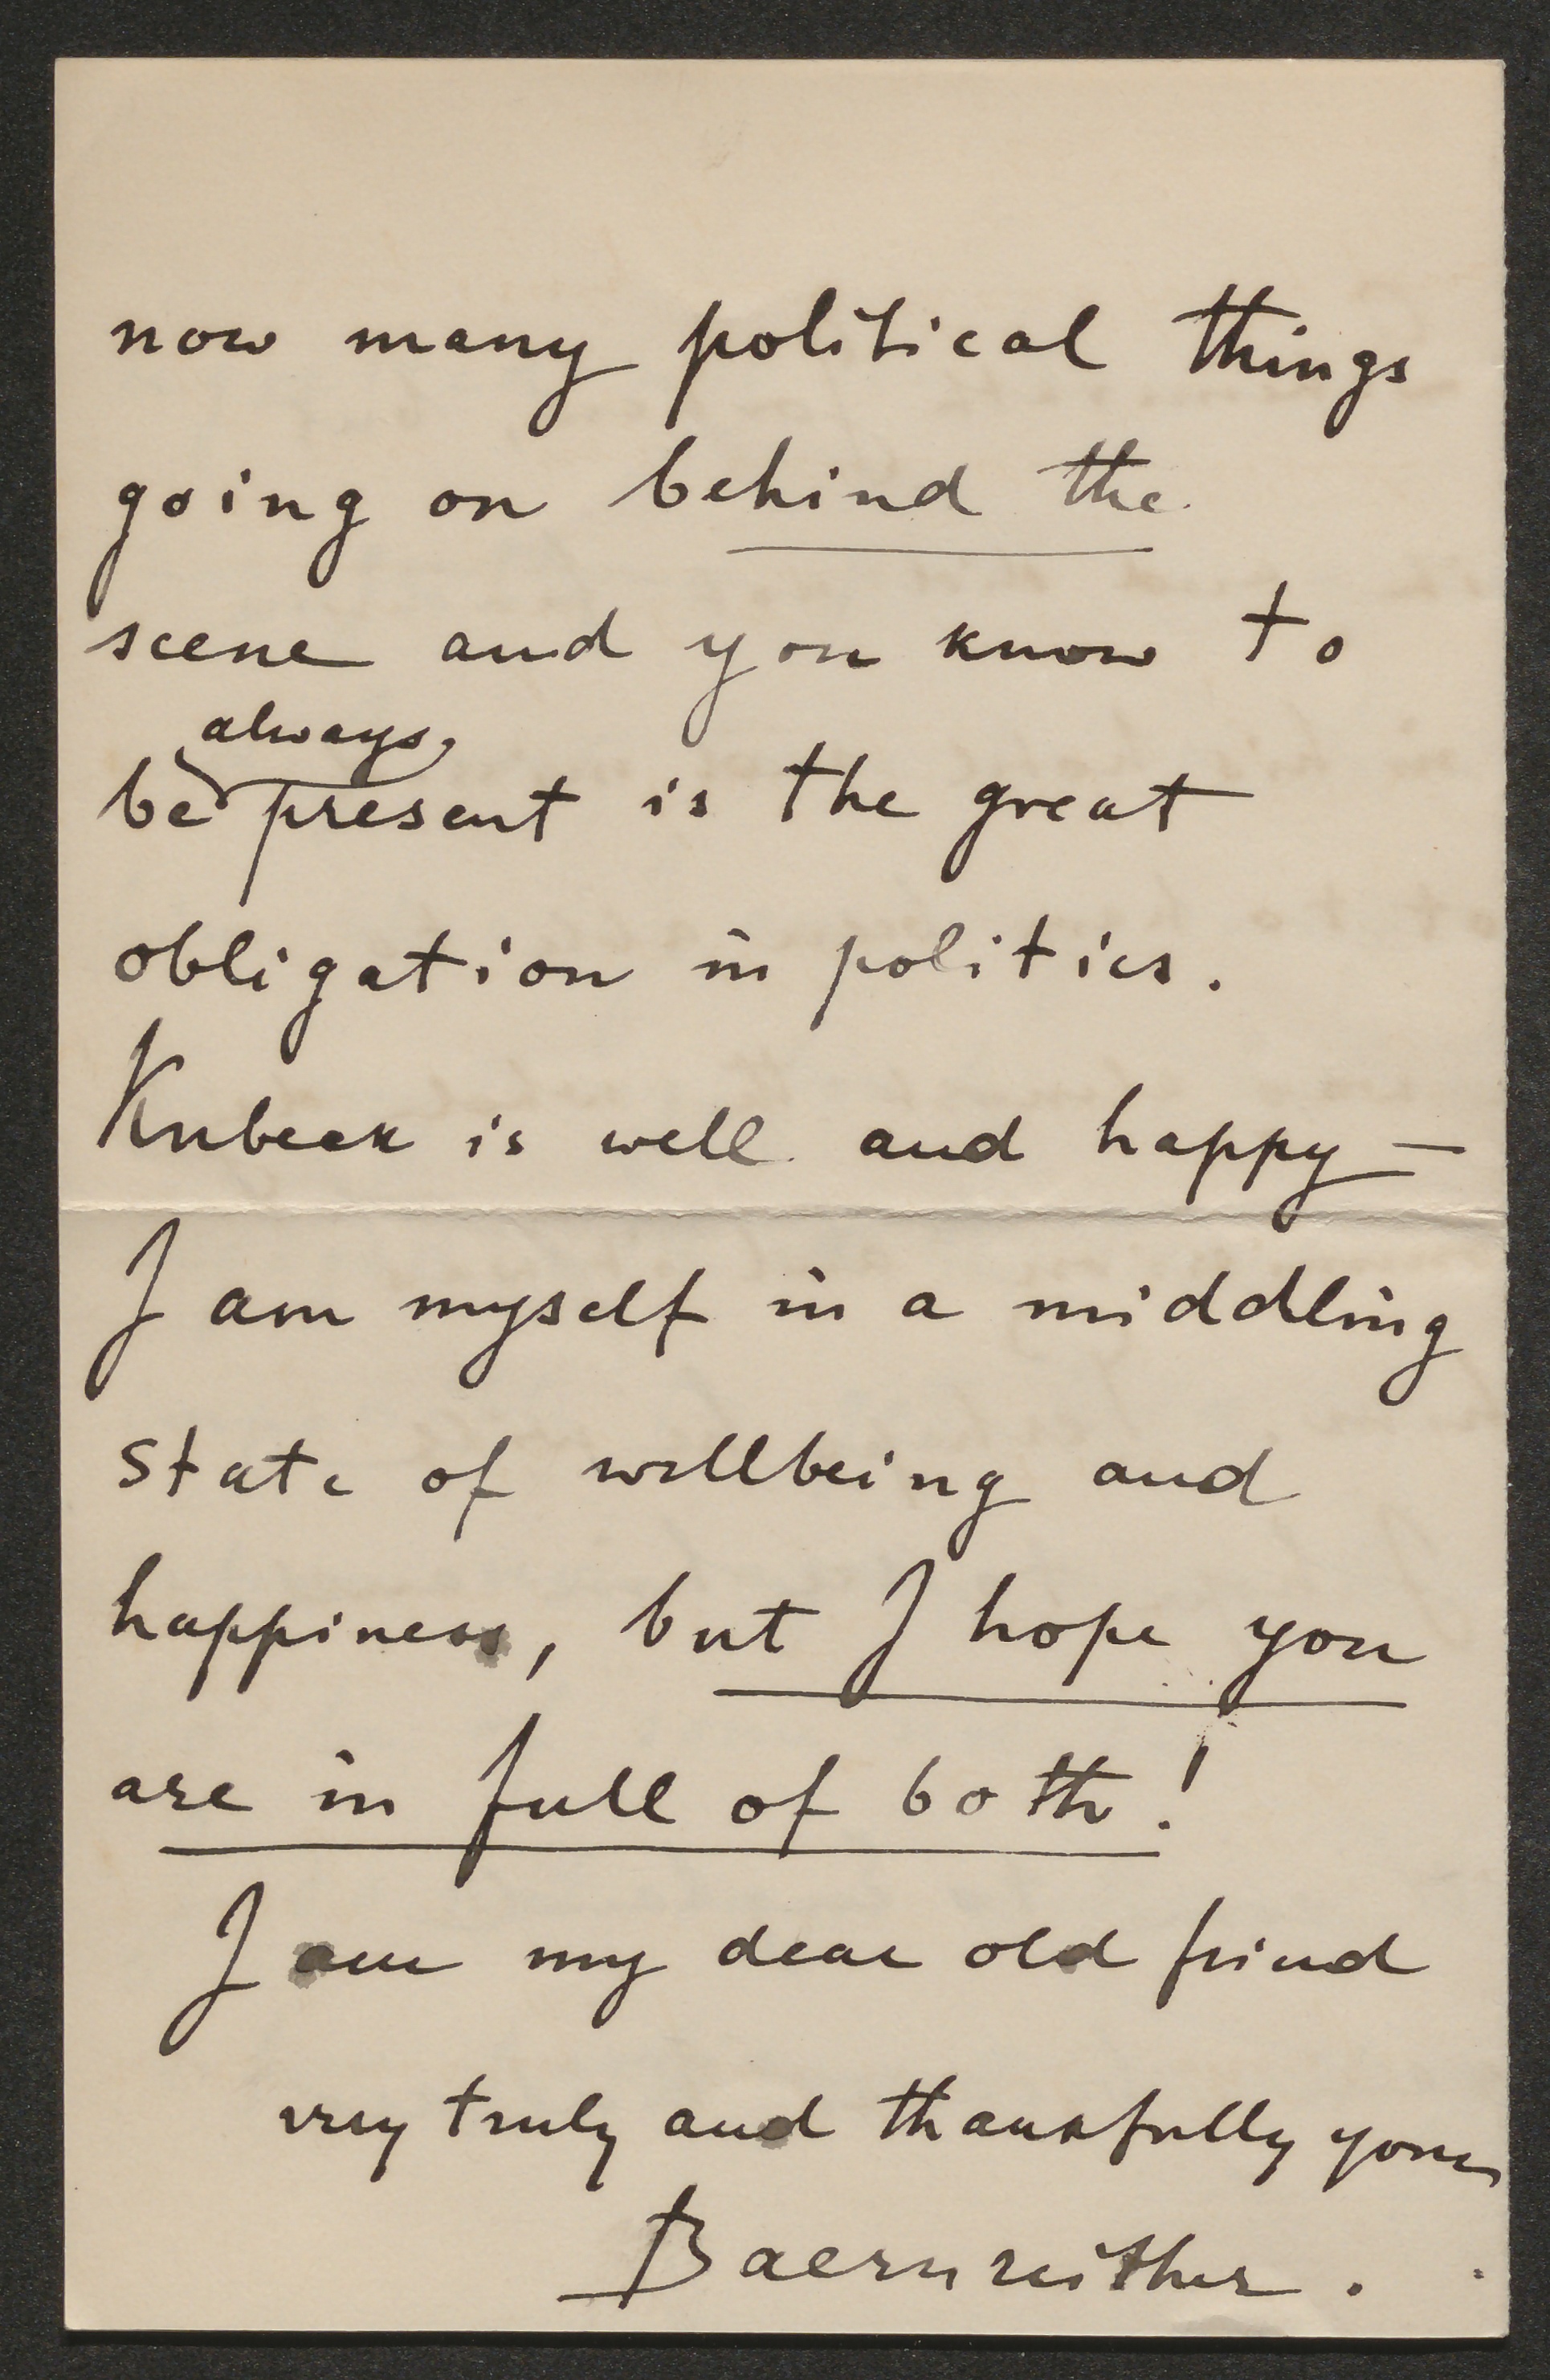 now many political things
going on behind the
scene and you know to
always
be present is the great
obligation in politics.
Kubeck is well and happy —
I am myself in a middling
state of wellbeing and
happiness, but I hope you
are in full of both!
I am my dear old friend
very truly and thankfully yours
Baernreither.